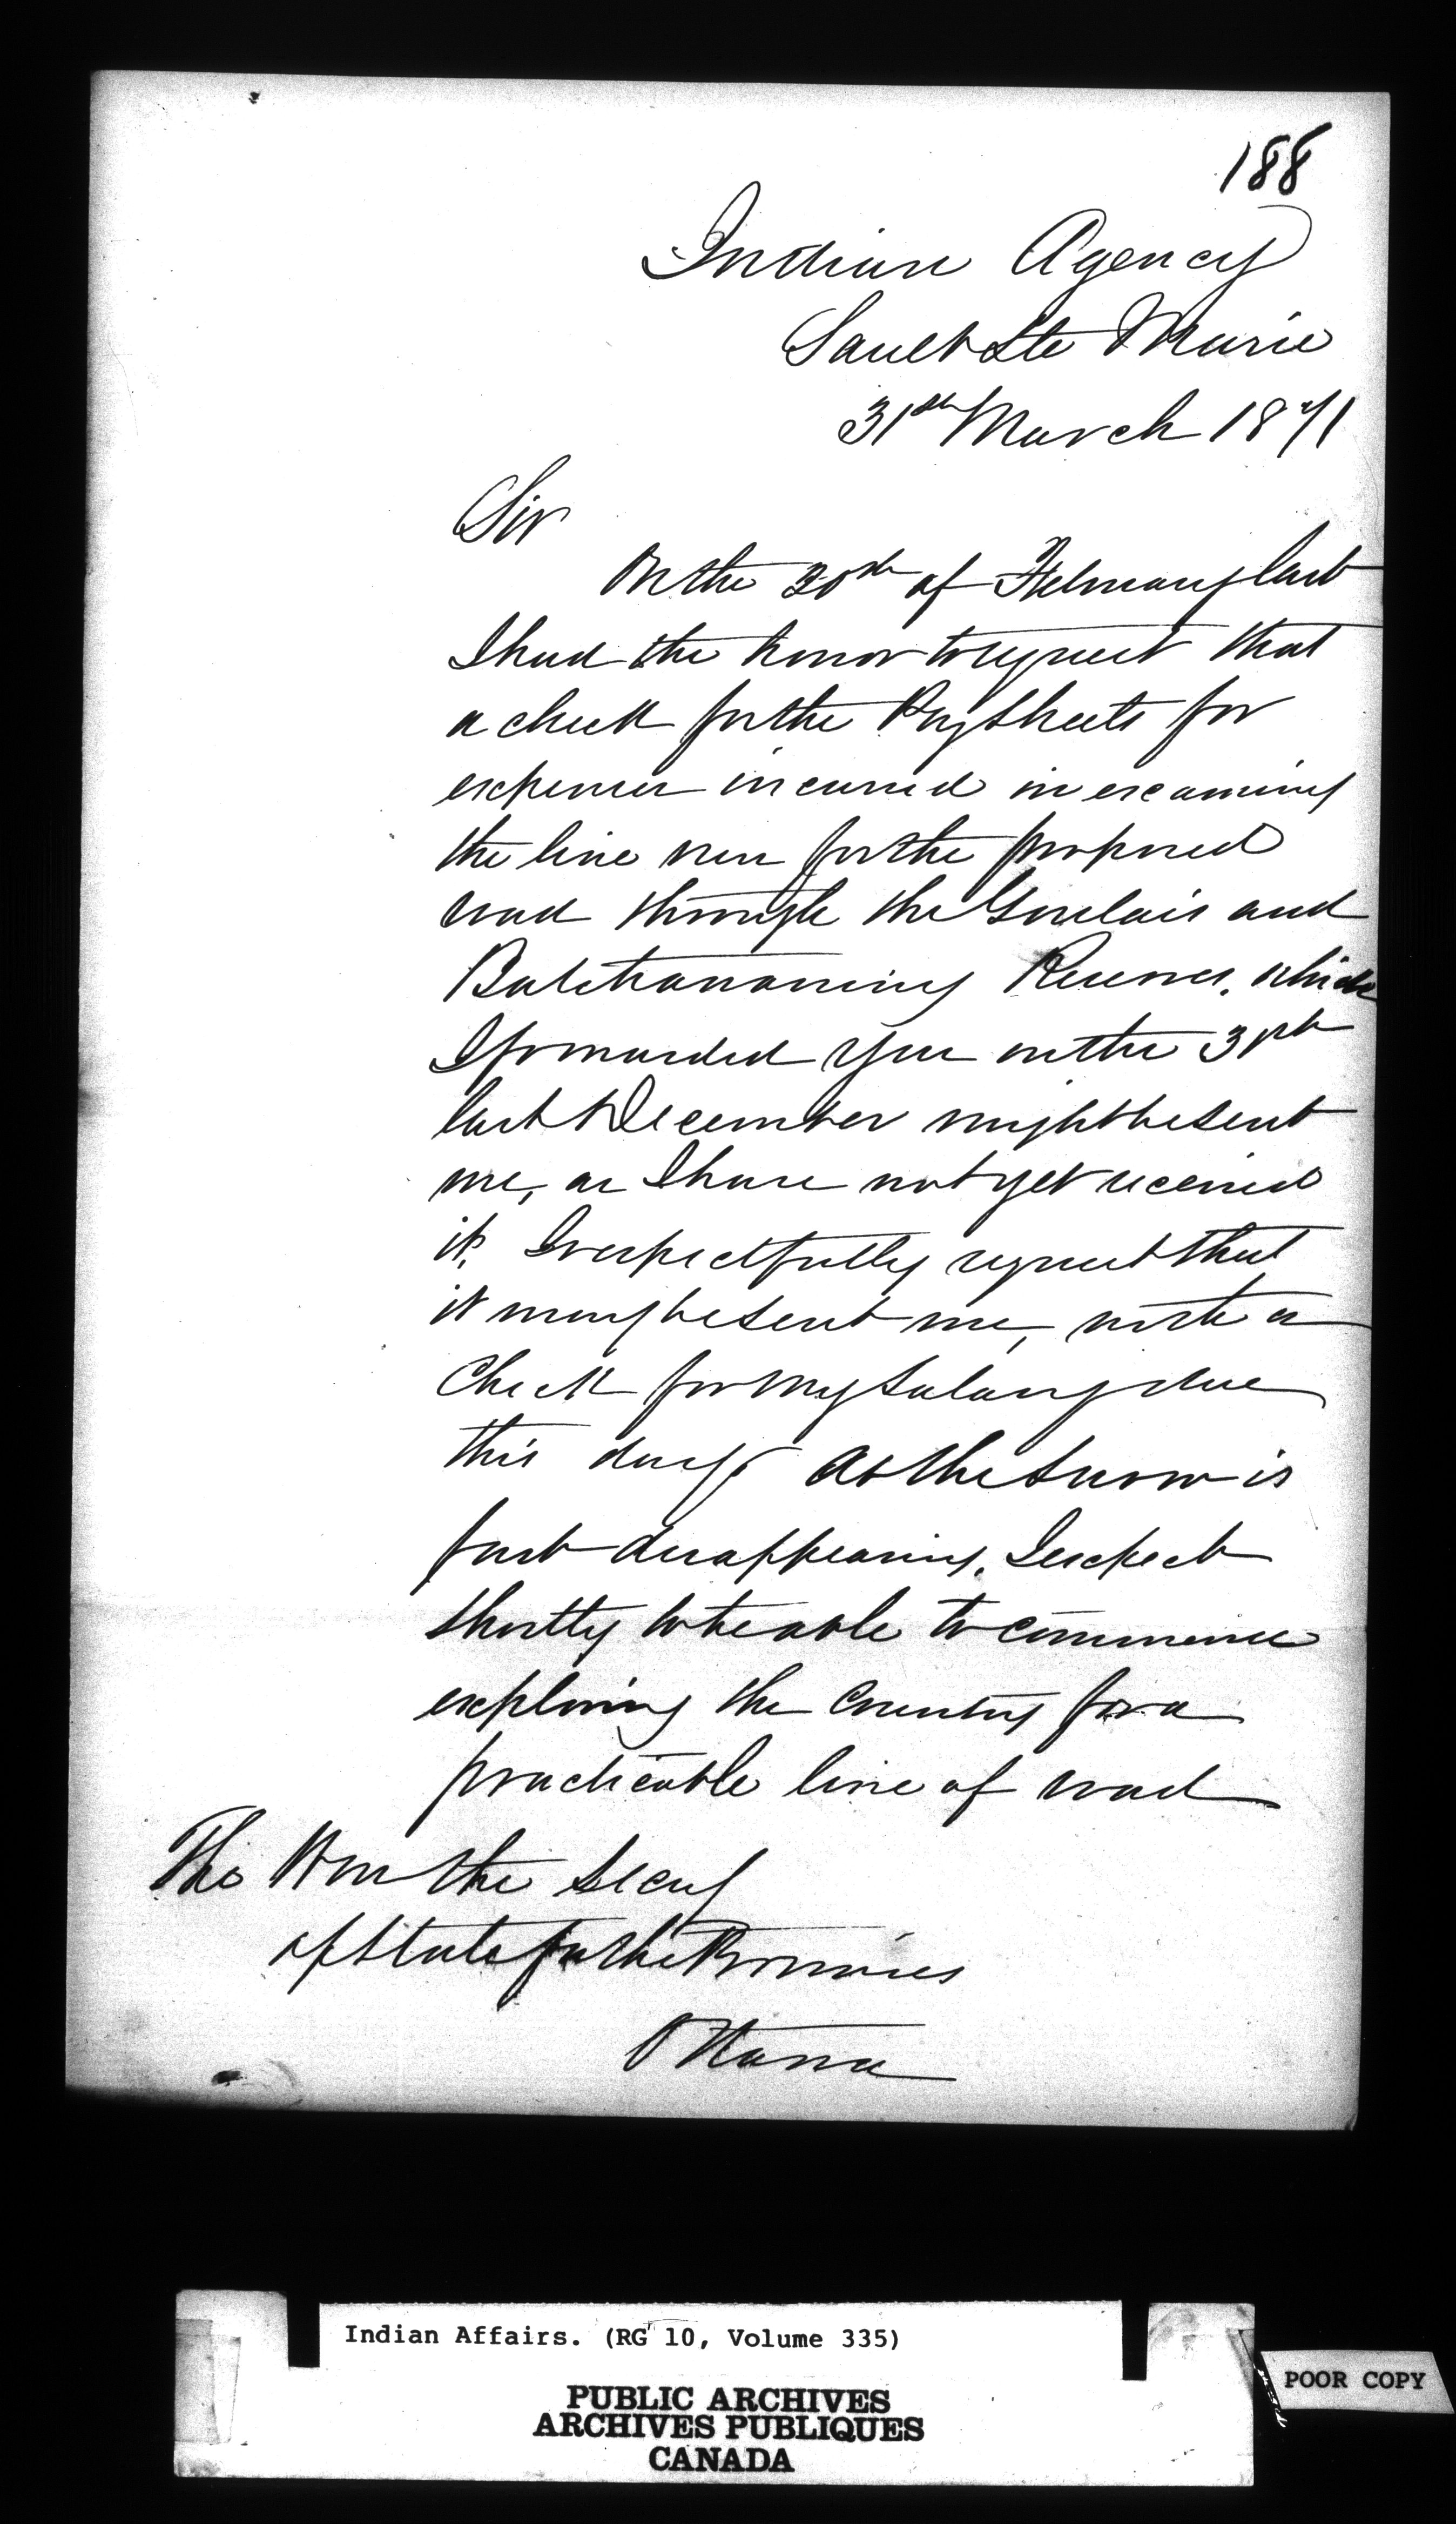 188
Indian Agency
Sault Ste Marie
31st March 1871
Sir
On the 20th of February last
I had the honor to request that
a check for the Pay Sheets for
expenses incurred in examining
the line run for the proposed
road through the Goulais and
Batchawaning Reserves, which
I forwarded you on the 31st
last December might be sent
me, as I have not yet received
it, I respectfully request that
it may be sent me, with a
Check for my Salary due
this day. As the Snow is
fast disappearing, I expect
shortly to be able to commence
exploring the Country for a
practicable line of road
The Hon the Secy
of State for the Provinces
Ottawa
Indian Affairs. (RG 10, Volume 335)
PUBLIC ARCHIVES
ARCHIVES PUBLIQUES
CANADA
POOR COPY